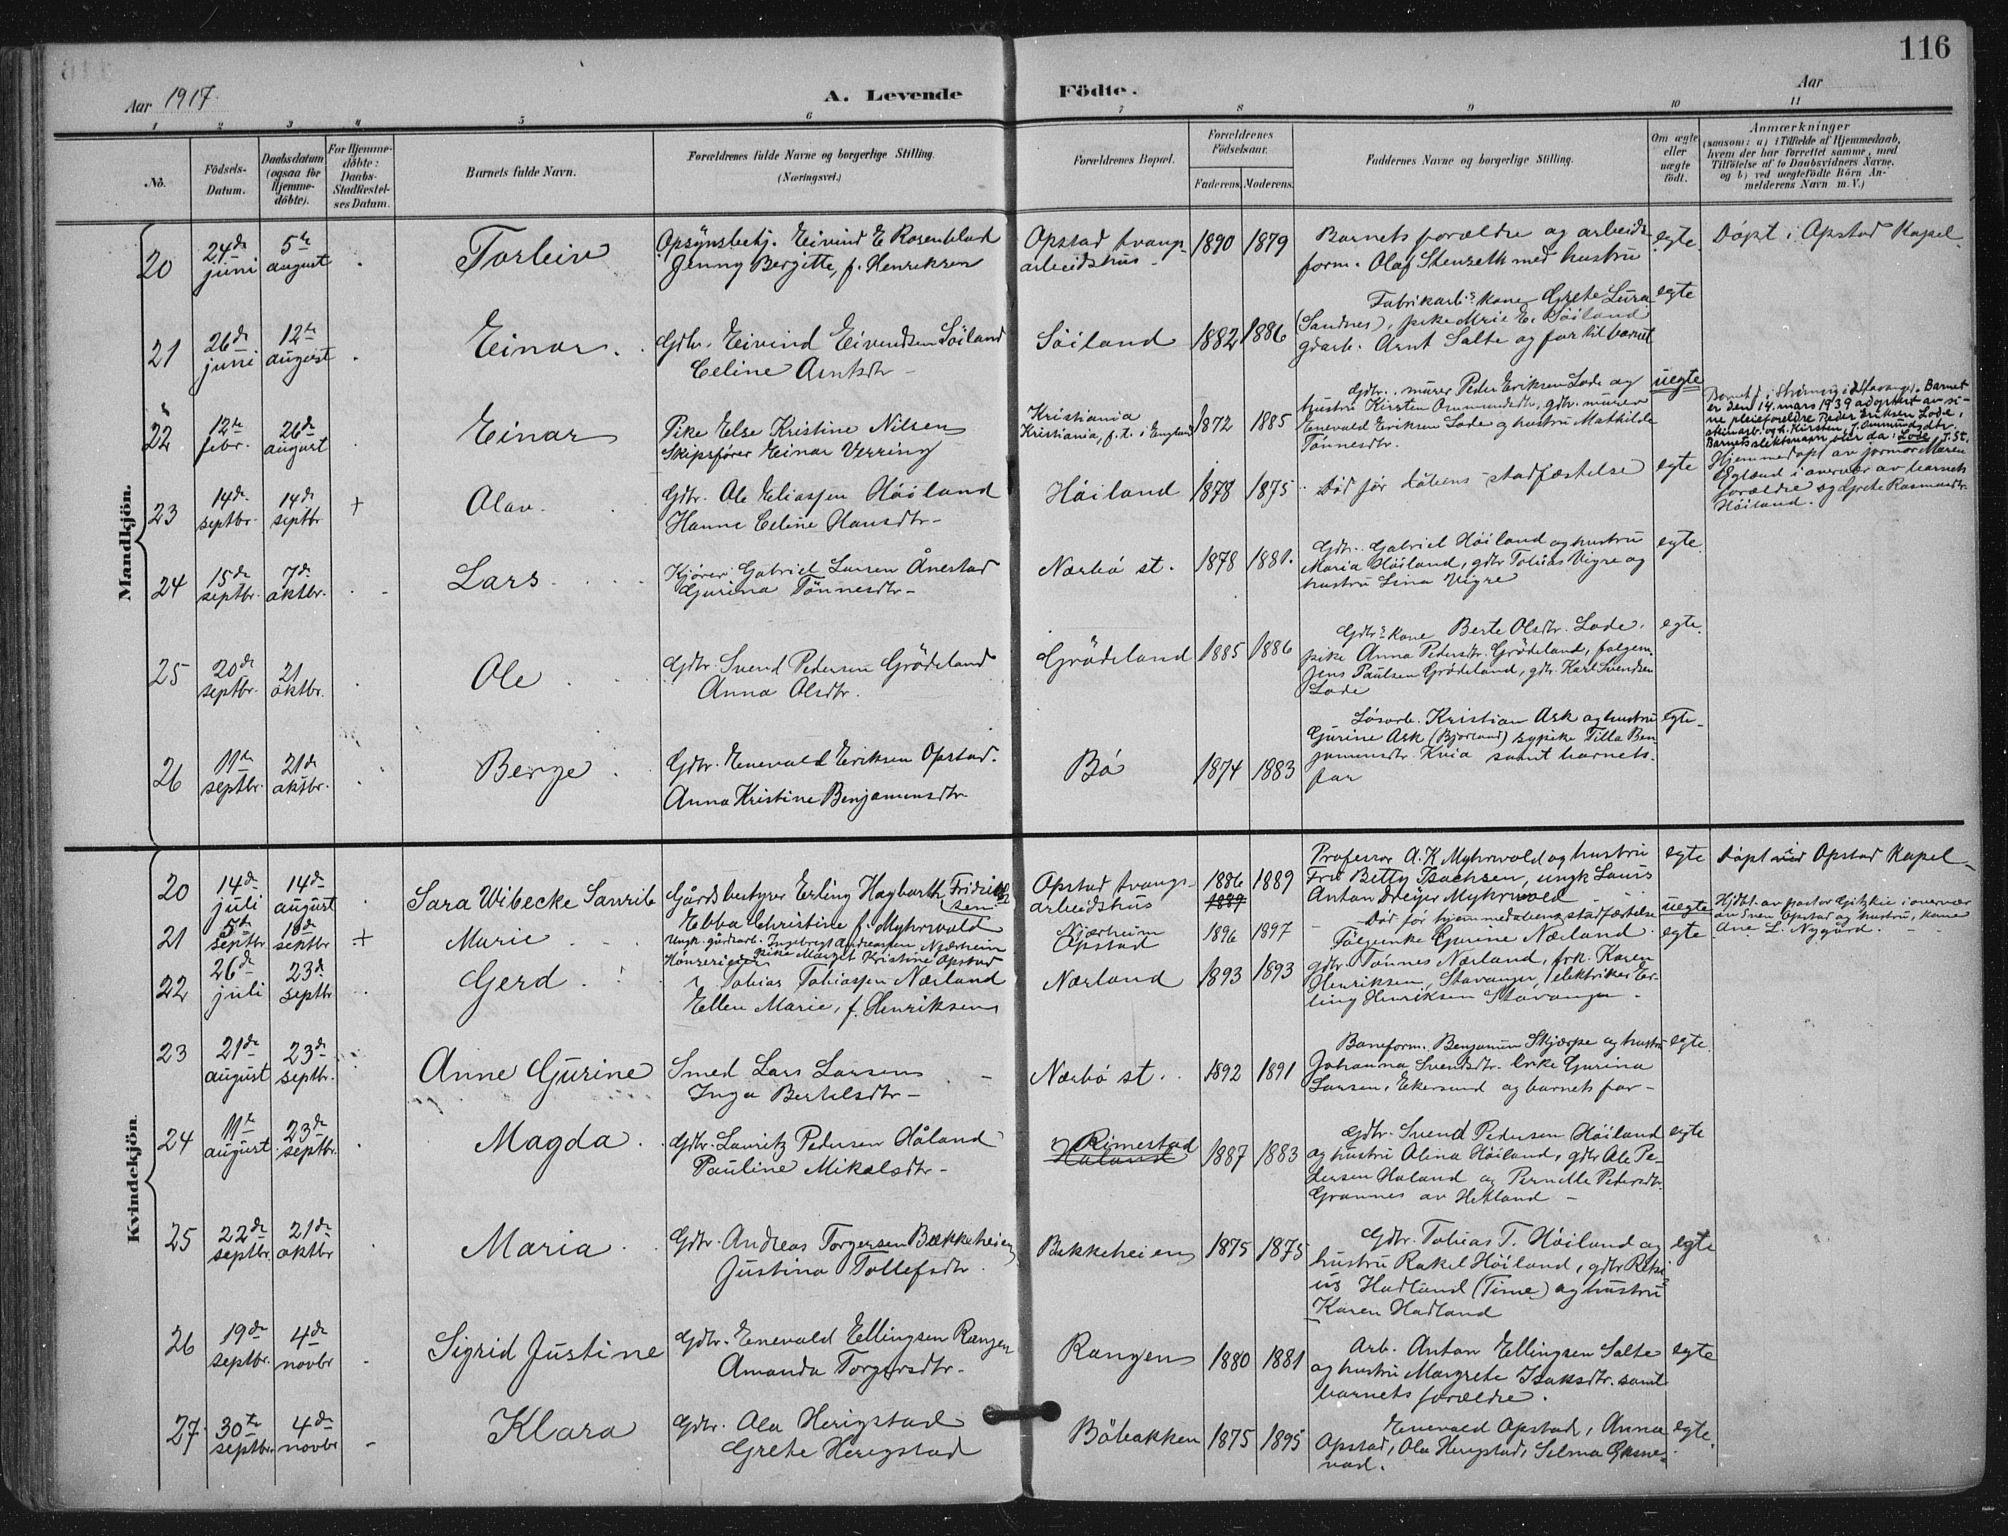 116
Aar 1917.
A. Levende Födte.
Aar
1 2 3 4 5 6 7 8 9 10 11
No.
Födsels-Datum.
Daabsdatum (ogsaa for Hjemme-döbte).
For Hjemme-döbte: Daabs-Stadfæstel-ses Datum.
Barnets fulde Navn.
Forældrenes fulde Navne og borgerlige Stilling. (Næringsvei.)
Forældrenes Bopæl.
Forældrenes Födselsaar.
Faderens. Moderens.
Faddernes Navne og borgerlige Stilling.
Om ægte eller uægte födt.
Anmærkninger
(saasom: a) i Tilfælde af Hjemmedaab, hvem der har forrettet samme, med Tilföielse af to Daabsvidners Navne, og b) ved uægtefödte Börn An-melderens Navn m. V.)
Mandkjön.
20 24de juni 5te august Torleiv
Opsynsbetj. Eivind E Rosenblad
Jenny Bergitte, f. Henriksen
Opstad tvangs-
arbeidshus
1890 1879
Barnets forældre og arbeids-
form. Olaf Stenseth med hustru
egte.
Döpt i Opstad Kapel.
21 26de juni 12te august Einar.
Gdbr. Eivind Eivendsen Söiland
Celine Arntsdtr
Söiland 1882 1886
Fabrikarb.s kone Grete Lura
(Sandnes), pike Mrie E. Söiland
gdarb. Arnt Salte og far til barnet
egte
22 12te febr. 26de august Einar
Pike Else Kristine Nilsen
Skipsfører Einar Verring
Kristiania
Kristiania, f. t. i England
1872 1885
Gdbr. murer Peder Eriksen Lode og
hustru Kirsten Ommundsdtr, gdbr. murer
Enevald Eriksen Lode og hustru Mathilde
Tönnesdtr.
uegte
Barnet f. i Strömvig i Stavanger. Barnet
er den 14. mars 1939 adoptert av si-
ne pleieforeldre Peder Eriksen Lode,
og h. Kirsten, f. Ommundsdtr.
Barnets slektsnavn blir da: Lode. T. St.
23 14de septbr. 14de septbr + Olav.
Gdbr. Ole Eliassen Höiland
Hanne Celine Hansdtr
Höiland 1878 1875
Död før dåbens stadfæstelse
egte
Hjemmedöpt av jormor Maren
Egeland i overvær av barnets
forældre og Grete Rasmusdtr.
Höiland.
24 15de septbr. 7de oktbr. Lars
Kjörer Gabriel Larsen Ånestad
Gurina Tönnesdtr
Nærbö st. 1878 1881.
Gdbr. Gabriel Höiland og hustru
Maria Höiland, gdbr Tobias Vigre og
hustru Lina Vigre
egte.
25 20de septbr. 21 oktbr. Ole
Gdbr. Svend Pedersen Grödeland
Anna Olsdtr.
Grödeland 1885 1886
Gdbrs kone Berte Olsdtr. Lode,
pike Anna Pedersdtr. Grödeland, følgem.
Jens Paulsen Grödeland, gdr. Karl Svendsen
Lode
egte.
26 11te septbr. 21de oktbr. Berge
Gdbr. Enevald Eriksen Opstad.
Anna Kristine Benjamensdtr
Bö 1874 1883
Løsarb. Kristian Ask og hustru
Gurine Ask (Bjorland) sypike Tilla Ben-
jamensdtr. Kvia samt barnets
far
egte
Kvindekjön.
20 14de juli 14de august Sara Wibecke Sanrib
Gårdsbestyrer Erling Hagbarth Fridrik-
sen
Ebba Christine f. Myhrwold
Opstad tvangs-
arbeidshus
1886 1889
1889
Professor A. K Myhrwold og hustru
Fru Betty Isachsen, ungk Louis
Anton Dreyer Myhrwold
egte
Döpt i Opstad Kapel
21 5te septbr 10de septbr + Marie
Ungk. gårdsarb. Ingebregt Andreassen Njærheim
pike Marget Kristine Opstad
Njærheim
Opstad
1896 1897
Död før hjemmedåbens stadfæstelse
uegte
Hjdbt. av pastor Gjitzkie i overvær
av Sven Opstad og hustru, kone
Ane L. Nygård.
22 26de juli 23de septbr Gerd
Hönserieier Tobias Tobiassen Nærland
Ellen Marie, f. Henriksen
Nærland 1893 1893
Fölgeenke Gurine Nærland
gdbr. Tönnes Nærland, frk. Karen
Henriksen, Stavanger, elektriker Er-
ling Henriksen Stavanger
egte
23 21de august 23de septbr. Anne Gurine
Smed Lars Larsen
Inga Bertelsdtr
Nærbö st. 1892 1891
Baneform. Benjamin Skjærpe og hustru
Johanna Svendsdtr. Enke Gurina
Larsen, Ekersund og barnets far
egte.
24 11te august 23de septbr. Magda
Gdbr. Lauritz Pedersen Håland
Pauline Mikalsdtr
Rimestad
Haland
1887 1883
Gdbr. Svend Pedersen Höiland
og hustru Alina Höiland, gdbr Ole Pe-
dersen Haland og Pernille Pedersdtr.
Grannes av Hetland
egte
25 22de septbr. 21de oktbr Maria
Gdbr. Andreas Torgersen Bækkeheien
Justina Tollefsdtr.
Bekkeheien 1875 1875
Gdbr. Tobias T. Höiland og
hustru Rakel Höiland, gdbr
Hadland (Time) og hustru
Karen Hadland
egte
26 19de septbr. 4de novbr Sigrid Justine
Gdbr. Enevald Ellingsen Rangen
Amanda Torgersdtr.
Rangen 1880 1881
Arb. Anton Ellingsen Salte
og hustru Margrete Isaksdtr. samt
barnets forældre.
egte
27. 30te septbr. 4de novbr Klara
Gdbr. Ola Herigstad
Grete Herigstad
Böbakken 1875 1895
Enevald Opstad, Anna
Opstad, Ola Herigstad, Selma
egte.